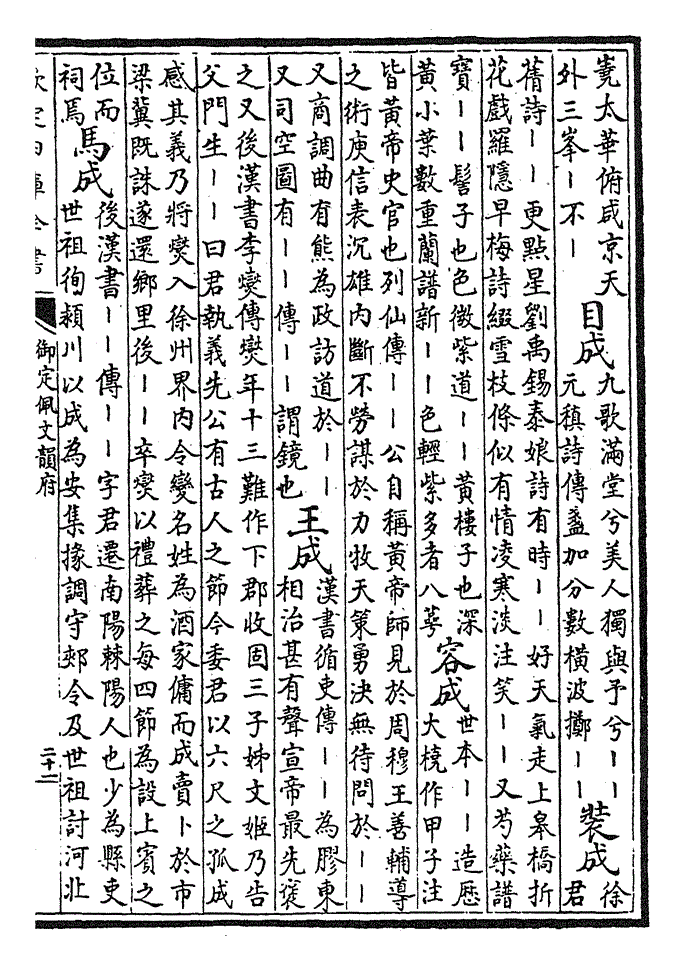 嵬太華俯咸京天
外三峯丨不丨
目成
九歌滿堂兮美人獨與予兮丨丨
元稹詩傳盞加分數橫波擲丨丨
裝成
徐
君
蒨詩丨丨更點星劉禹錫泰娘詩有時丨丨好天氣走上皋橋折
花戲羅隱早梅詩綴雪枝條似有情凌寒淡注笑丨丨又芍藥譜
寶丨丨髻子也色微紫道丨丨黃樓子也深
黃小葉數重蘭譜新丨丨色輕紫多者八萼
容成
世本丨丨造歴
大橈作甲子注
皆黃帝史官也列仙傳丨丨公自稱黃帝師見於周穆王善輔導
之術庾信表沉雄内斷不勞謀於力牧天策勇決無待問於丨丨
又商調曲有熊為政訪道於丨丨
又司空圖有丨丨傳丨丨謂鏡也
王成
漢書循吏傳丨丨為膠東
相治甚有聲宣帝最先襃
之又後漢書李燮傳燮年十三難作下郡收固三子姊文姬乃告
父門生丨丨曰君執義先公有古人之節今委君以六尺之孤成
感其義乃將燮入徐州界内令變名姓為酒家傭而成賣卜於市
梁冀既誅遂還鄉里後丨丨卒燮以禮葬之每四節為設上賓之
位而
祠焉
馬成
後漢書丨丨傳丨丨字君遷南陽棘陽人也少為縣吏
世祖徇潁川以成為安集掾調守郟令及世祖討河北
御定佩文韻府
二十二